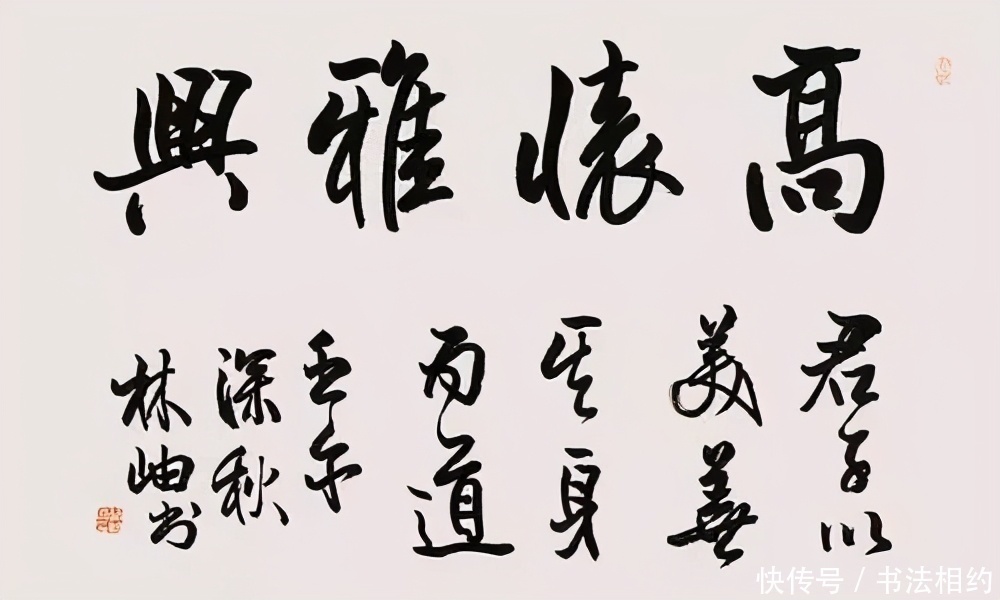 高懷雅興
君子以
美善
其身
而道
壬午
深秋
林岫书
快传号 / 书法相约